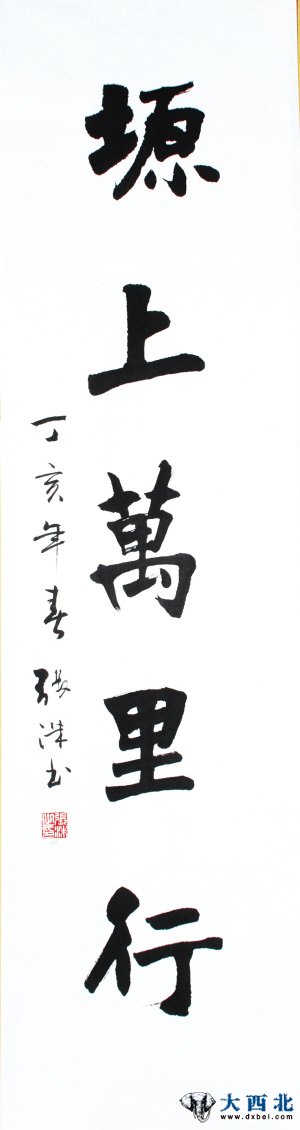 塬上萬里行
丁亥年春 張洙书
大西北
www.dxbei.com